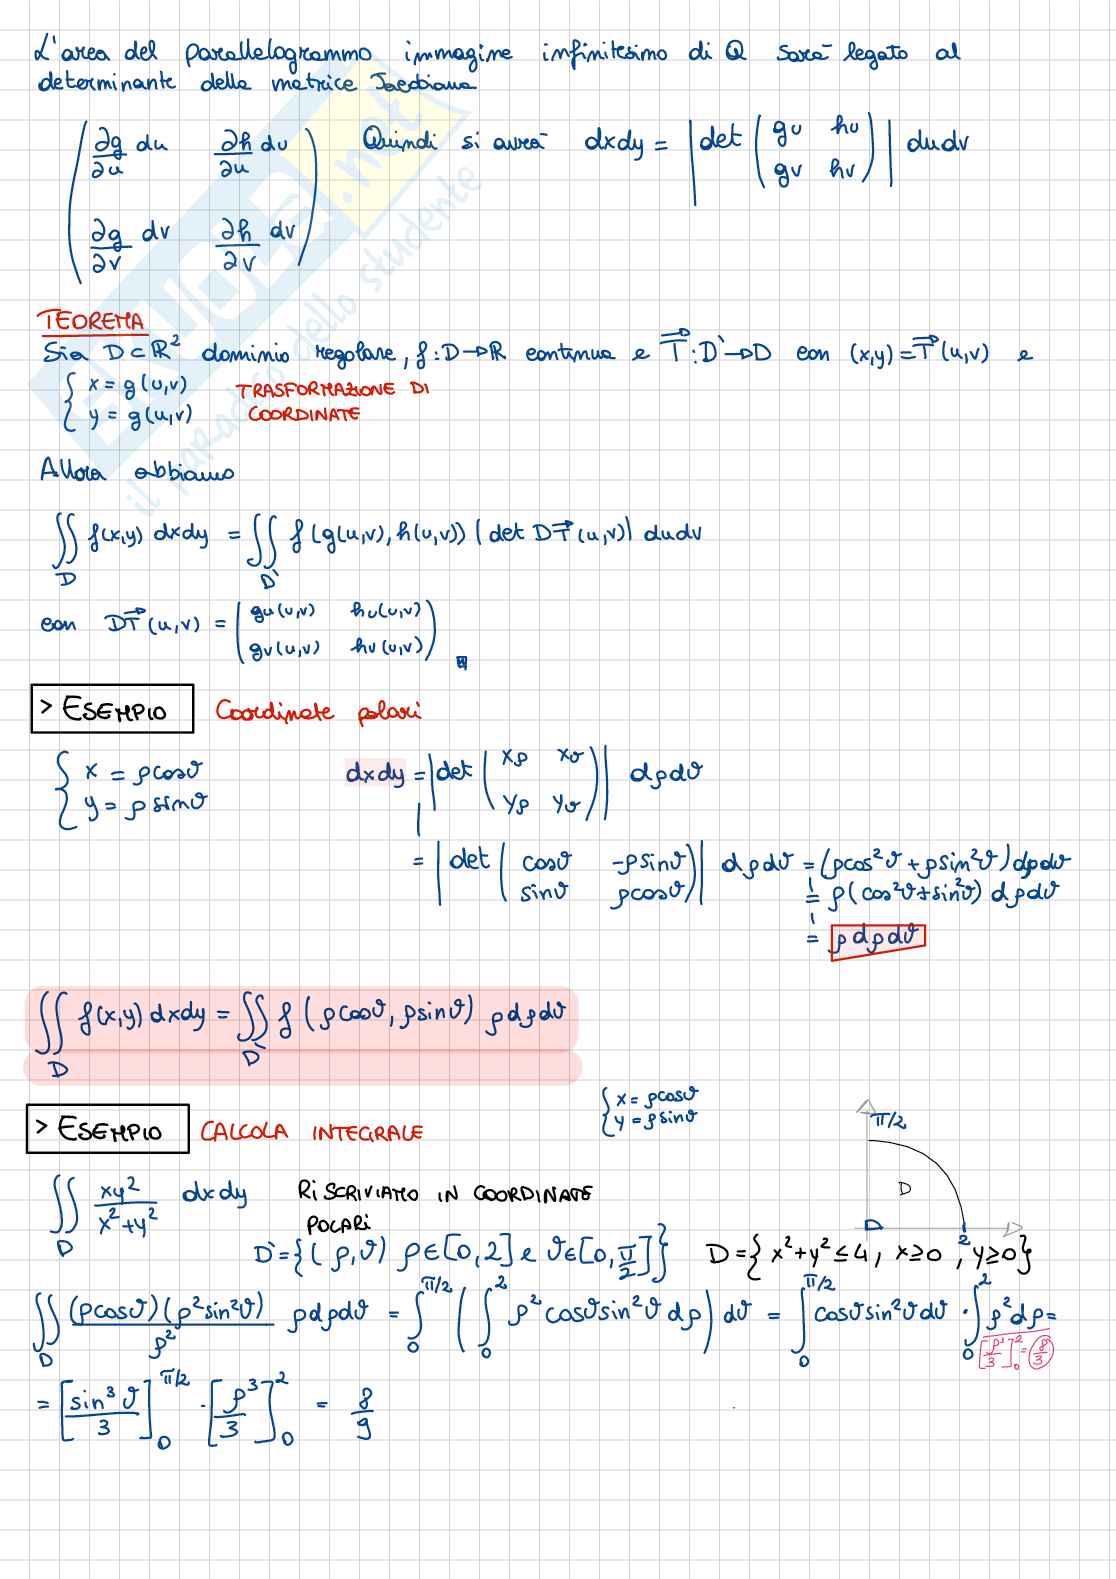 L'area del parallelogrammo immagine infinitesimo di Q sarà legato al
determinante della matrice Jacobiana
( ∂g/∂u du   ∂h/∂u du
∂g/∂v dv   ∂h/∂v dv )
Quindi si avrà dxdy = | det ( gu hu
gv hv ) | dudv
TEOREMA
Sia D⊂ℝ² dominio regolare, f: D→ℝ continua e T⃗: D'→D con (x,y)=T⃗(u,v) e
{ x = g(u,v)
y = g(u,v)
TRASFORMAZIONE DI
COORDINATE
Allora abbiamo
∬_D f(x,y) dxdy = ∬_D' f(g(u,v), h(u,v)) |det DT⃗(u,v)| dudv
con DT⃗(u,v) = ( gu(u,v) hu(u,v)
gv(u,v) hv(u,v) )
> ESEMPIO Coordinate polari
{ x = ρcosϑ
y = ρsinϑ
dxdy = | det ( xρ xϑ
yρ yϑ ) | dρdϑ
= | det ( cosϑ -ρsinϑ
sinϑ ρcosϑ ) | dρdϑ = (ρcos²ϑ + ρsin²ϑ) dρdϑ
= ρ(cos²ϑ+sin²ϑ) dρdϑ
= ρdρdϑ
∬_D f(x,y) dxdy = ∬_D' f(ρcosϑ, ρsinϑ) ρdρdϑ
{ x = ρcosϑ
y = ρsinϑ
> ESEMPIO CALCOLA INTEGRALE
π/2
D
2
∬_D xy²/(x²+y²) dxdy RISCRIVIAMO IN COORDINATE
POLARI
D'={(ρ,ϑ) ρ∈[0,2] e ϑ∈[0,π/2]} D={x²+y²≤4, x≥0, y≥0}
∬_D (ρcosϑ)(ρ²sin²ϑ)/ρ² ρdρdϑ = ∫_0^π/2 ( ∫_0^2 ρ²cosϑsin²ϑ dρ ) dϑ = ∫_0^π/2 cosϑsin²ϑdϑ · ∫_0^2 ρ²dρ =
[ρ³/3]_0^2 = 8/3
= [sin³ϑ/3]_0^π/2 · [ρ³/3]_0^2 = 8/9
.net
il paradiso dello studente